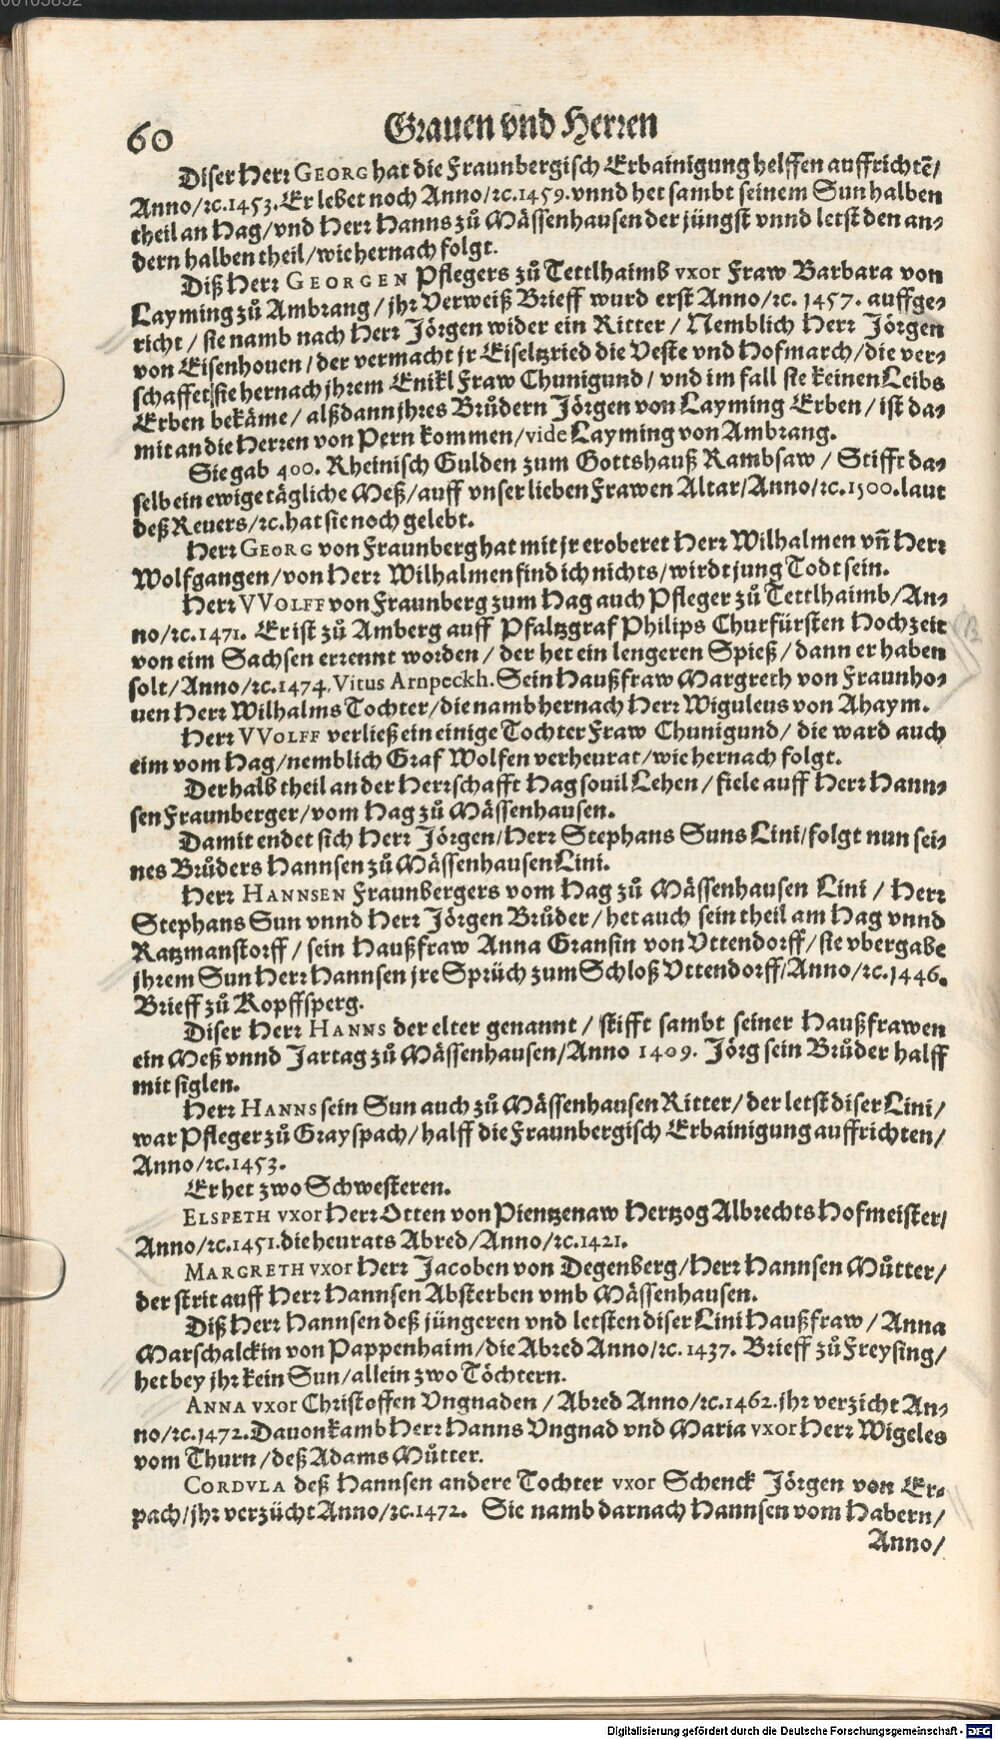 60
Grauen vnd Herren
Diser Herr GEORG hat die Fraunbergisch Erbainigung helffen auffrichtē/
Anno/ꝛc.1453. Er lebet noch Anno/ꝛc.1459. vnnd het sambt seinem Sun halben
theil an Hag/vnd Herr Hanns zů Mässenhausen der jüngst vnnd letst den an⸗
dern halben theil/wie hernach folgt.
Diß Herr GEORGEN Pflegers zů Tettlhaimb vxor Fraw Barbara von
Layming zů Ambrang/jhr Verweiß Brieff wurd erst Anno/ꝛc. 1457. auffge⸗
richt/sie namb nach Herr Jörgen wider ein Ritter/Nemblich Herr Jörgen
von Eisenhouen/der vermacht jr Eiseltzried die Veste vnd Hofmarch/die ver⸗
schaffet sie hernach jhrem Enikl Fraw Chunigund/vnd im fall sie keinen Leibs
Erben bekäme/alßdann jhres Brůdern Jörgen von Layming Erben/ist da⸗
mit an die Herren von Pern kommen/vide Layming von Ambrang.
Sie gab 400. Rheinisch Gulden zum Gottshauß Rambsaw/Stifft da⸗
selb ein ewige tägliche Meß/auff vnser lieben Frawen Altar/Anno/ꝛc.1500. laut
deß Reuers/ꝛc. hat sie noch gelebt.
Herr GEORG von Fraunberg hat mit jr eroberet Herr Wilhalmen vn̄ Herr
Wolfgangen/von Herr Wilhalmen find ich nichts/wirdt jung Todt sein.
Herr VVOLFF von Fraunberg zum Hag auch Pfleger zů Tettlhaimb/An⸗
no/ꝛc.1471. Er ist zů Amberg auff Pfaltzgraf Philips Churfürsten Hochzeit
von eim Sachsen errennt worden/der het ein lengeren Spieß/dann er haben
solt/Anno/ꝛc.1474. Vitus Arnpeckh. Sein Haußfraw Margreth von Fraunho⸗
uen Herr Wilhalms Tochter/die namb hernach Herr Wiguleus von Ahaym.
Herr VVOLFF verließ ein einige Tochter Fraw Chunigund/die ward auch
eim vom Hag/nemblich Graf Wolfen verheurat/wie hernach folgt.
Der halb theil an der Herrschafft Hag souil Lehen/fiele auff Herr Hann⸗
sen Fraunberger/vom Hag zů Mässenhausen.
Damit endet sich Herr Jörgen/Herr Stephans Suns Lini/folgt nun sei⸗
nes Brůders Hannsen zů Mässenhausen Lini.
Herr HANNSEN Fraunbergers vom Hag zů Mässenhausen Lini/Herr
Stephans Sun vnnd Herr Jörgen Brůder/het auch sein theil am Hag vnnd
Ratzmanstorff/sein Haußfraw Anna Gransin von Vttendorff/sie vbergabe
jhrem Sun Herr Hannsen jre Sprüch zum Schloß Vttendorff/Anno/ꝛc.1446.
Brieff zů Kopffsperg.
Diser Herr HANNS der elter genannt/stifft sambt seiner Haußfrawen
ein Meß vnnd Jartag zů Mässenhausen/Anno 1409. Jörg sein Brůder halff
mit siglen.
Herr HANNS sein Sun auch zů Mässenhausen Ritter/der letst diser Lini/
war Pfleger zů Grayspach/halff die Fraunbergisch Erbainigung auffrichten/
Anno/ꝛc.1453.
Er het zwo Schwesteren.
ELSPETH vxor Herr Otten von Pientzenaw Hertzog Albrechts Hofmeister/
Anno/ꝛc.1451. die heurats Abred/Anno/ꝛc.1421.
MARGRETH vxor Herr Jacoben von Degenberg/Herr Hannsen Můtter/
der strit auff Herr Hannsen Absterben vmb Mässenhausen.
Diß Herr Hannsen deß jüngeren vnd letsten diser Lini Haußfraw/Anna
Marschalckin von Pappenhaim/die Abred Anno/ꝛc. 1437. Brieff zů Freysing/
het bey jhr kein Sun/allein zwo Töchtern.
ANNA vxor Christoffen Vngnaden/Abred Anno/ꝛc.1462. jhr verzicht An⸗
no/ꝛc.1472. Dauon kamb Herr Hanns Vngnad vnd Maria vxor Herr Wigeles
vom Thurn/deß Adams Můtter.
CORDVLA deß Hannsen andere Tochter vxor Schenck Jörgen von Er⸗
pach/jhr verzücht Anno/ꝛc.1472. Sie namb darnach Hannsen vom Habern/
Anno/
Digitalisierung gefördert durch die Deutsche Forschungsgemeinschaft - DFG